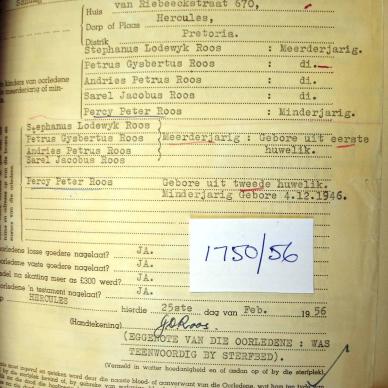 Huis van Riebeeckstraat 670,
Dorp of Plaas Hercules,
Distrik Pretoria.
Stephanus Lodewyk Roos : Meerderjarig.
Petrus Gysbertus Roos : di.
Andries Petrus Roos : di.
Sarel Jacobus Roos : di.
Percy Peter Roos : Minderjarig.
Stephanus Lodewyk Roos
Petrus Gysbertus Roos Meerderjarig: Gebore uit eerste
Andries Petrus Roos huwelik.
Sarel Jacobus Roos
Percy Peter Roos Gebore uit tweede huwelik.
Minderjarig Gebore 4.12.1946.
1750/56
oorledene losse goedere nagelaat? JA.
oorledene vaste goedere nagelaat? JA.
na skatting meer as £300 werd? JA.
oorledene 'n testament nagelaat? JA.
HERCULES hierdie 25ste dag van Feb. 1956
(Handtekening) Roos
(EGGENOTE VAN DIE OORLEDENE : WAS
TEENWOORDIG BY STERFBED).
(Vermeld in watter hoedanigheid en of aadan op of by die sterfplek)